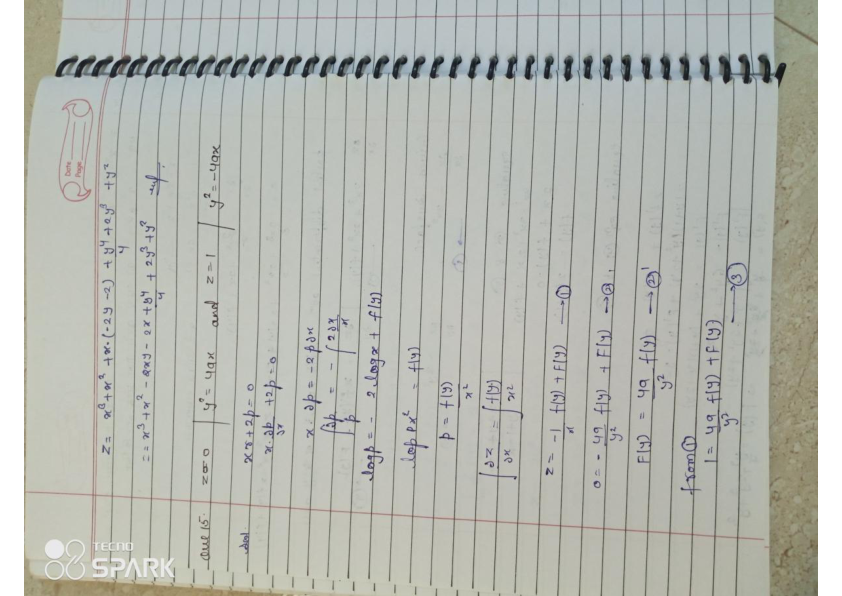 Date
Page
z = x³ + x² + x·(-2y - 2) + y⁴/4 + 2y³ + y²
= x³ + x² - 2xy - 2x + y⁴/4 + 2y³ + y²
Que 15. z=0 | y² = 4ax and z = 1 | y² = -4ax
Sol xr + 2p = 0
x·∂p/∂x + 2p = 0
x·∂p = -2p∂x
∫∂p/p = -∫2∂x/x
log p = - 2 log x + f(y)
log px² = f(y)
p = f(y)/x²
∫∂z/∂x = ∫f(y)/x²
z = -1/x f(y) + F(y) → ①
0 = - 4a/y² f(y) + F(y) → ②
F(y) = 4a/y² f(y) → ②'
from ①
1 = 4a/y² f(y) + F(y) → ③
TECNO
SPARK